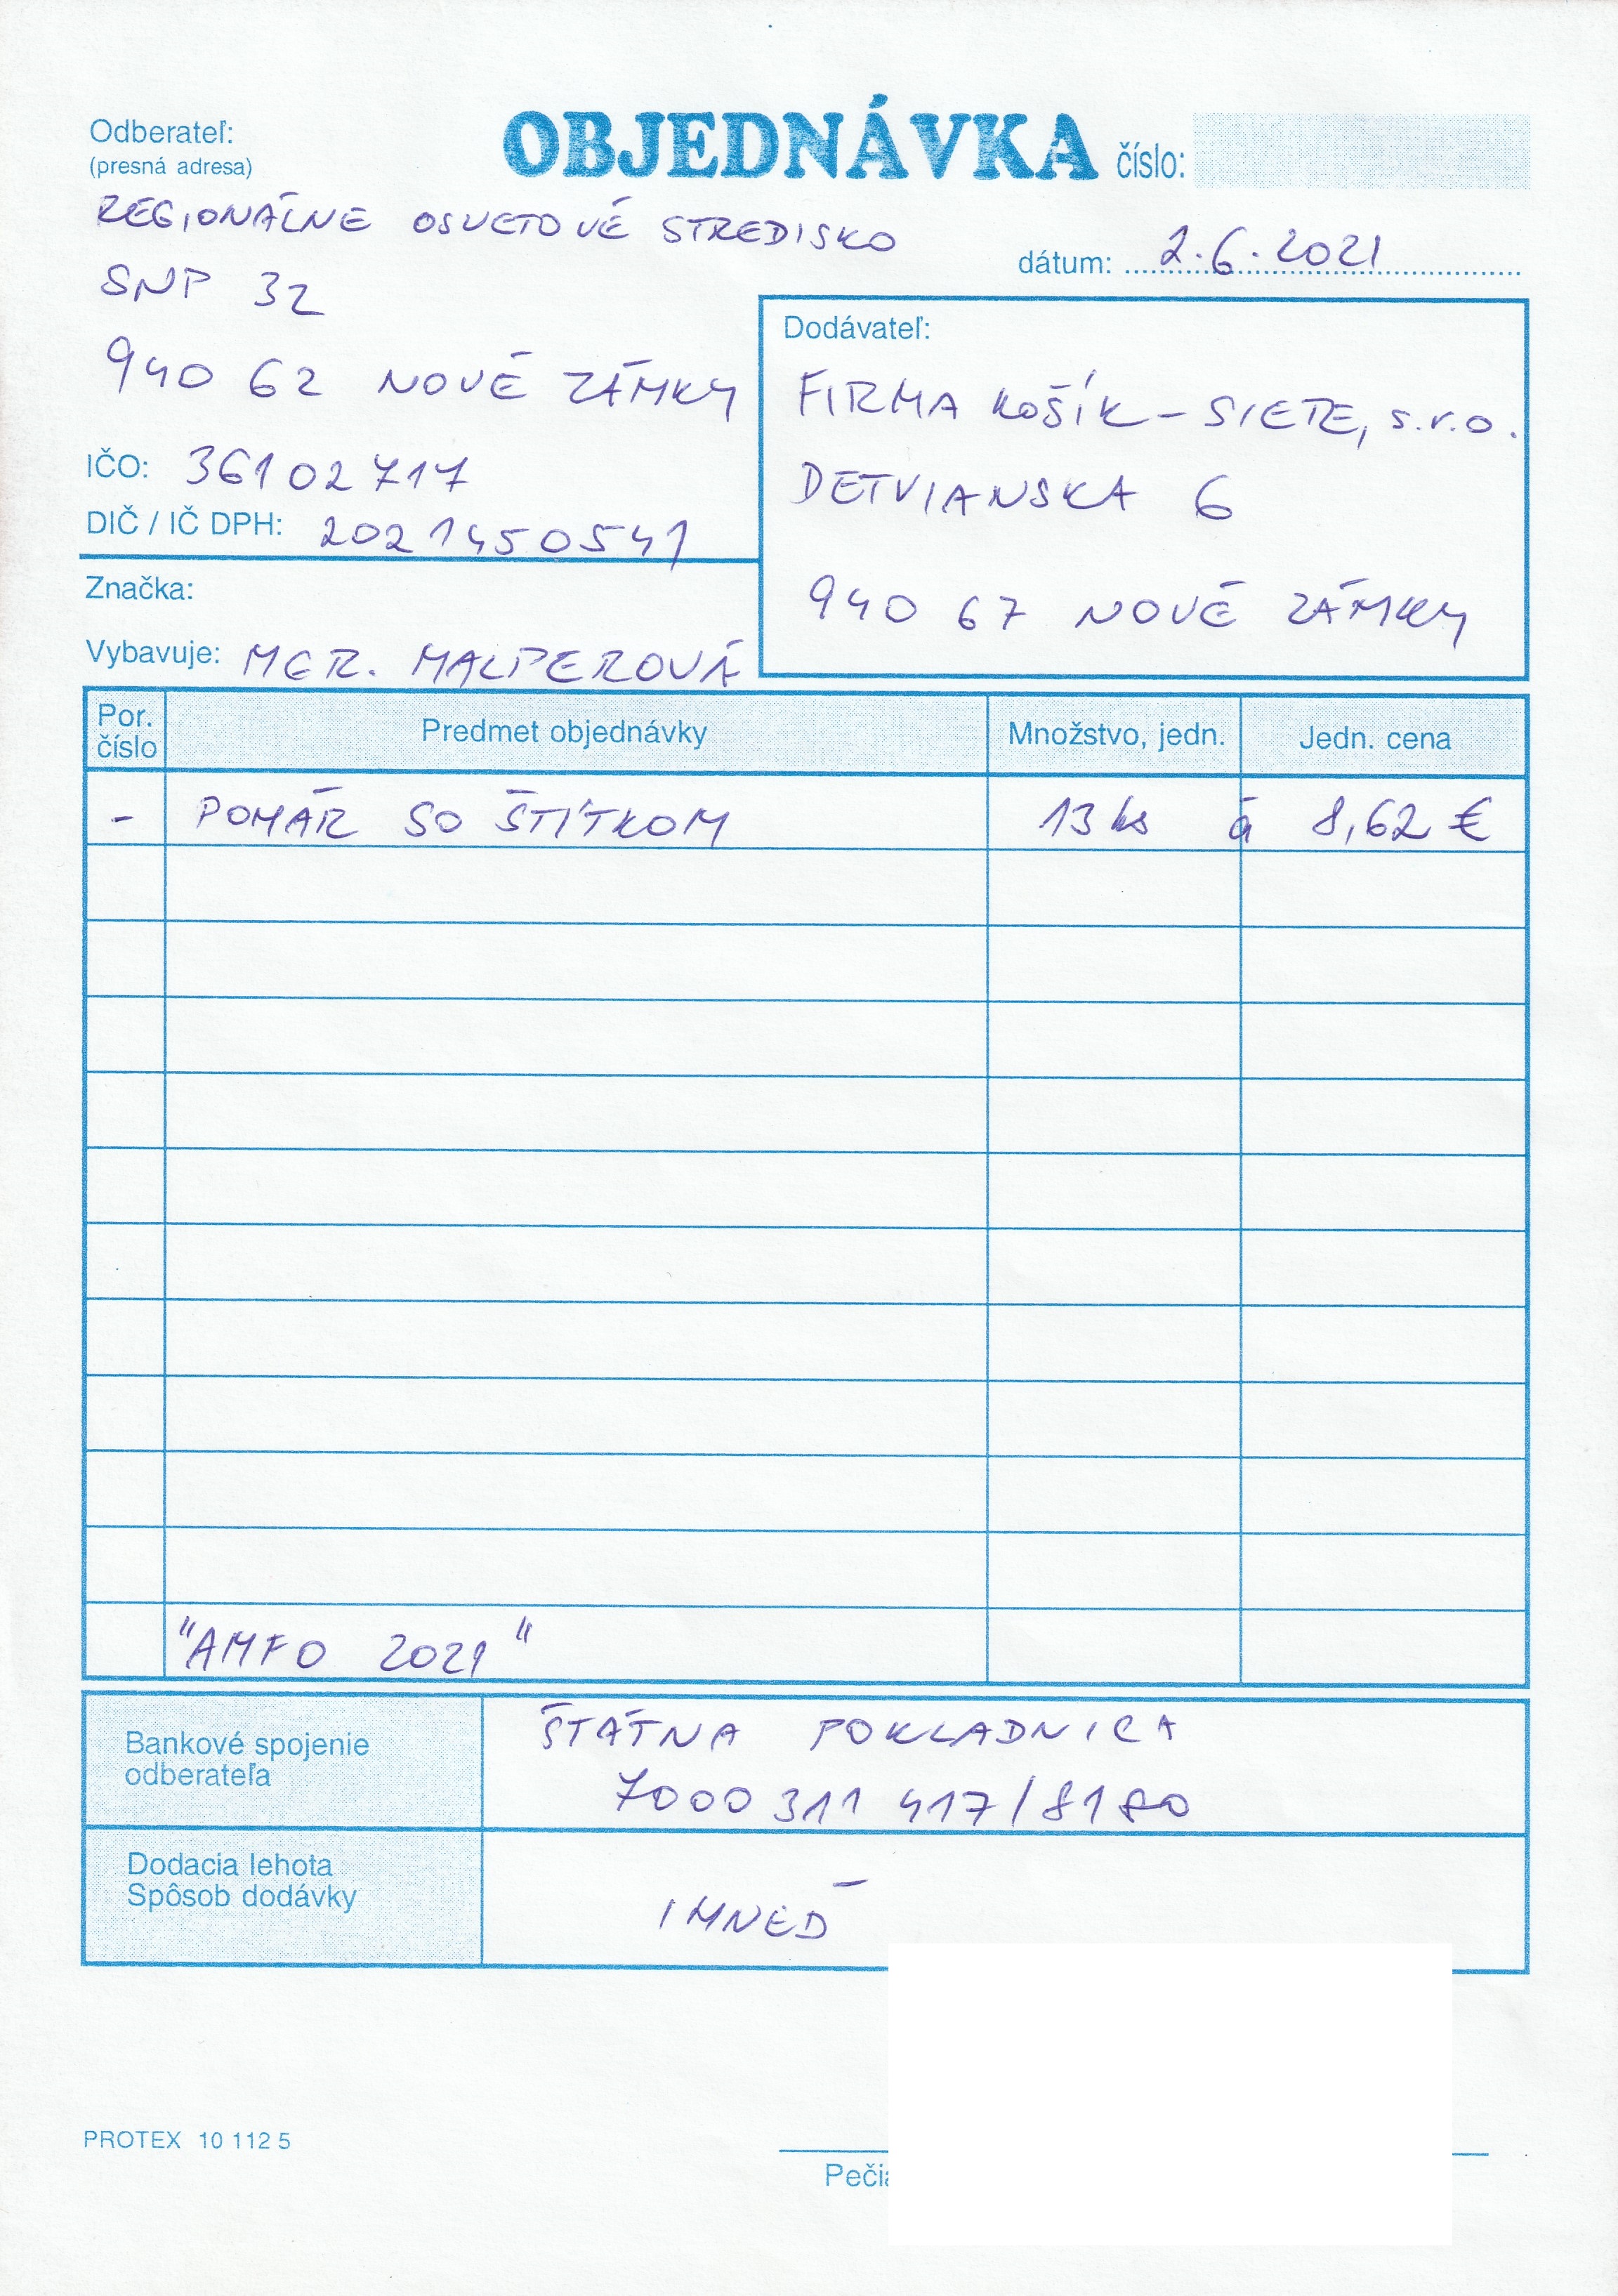 Odberateľ:
(presná adresa)
OBJEDNÁVKA číslo:
REGIONÁLNE OSVETOVÉ STREDISKO
SNP 32
940 62 NOVÉ ZÁMKY
dátum: 2.6.2021
IČO: 36102717
DIČ / IČ DPH: 2021450541
Značka:
Vybavuje: MGR. MALPEROVÁ
Dodávateľ:
FIRMA KOŠÍK - SIETE, s.r.o.
DETVIANSKA 6
940 67 NOVÉ ZÁMKY
Por. číslo Predmet objednávky Množstvo, jedn. Jedn. cena
- POHÁR SO ŠTÍTKOM 13 ks á 8,62 €
"AMFO 2021"
Bankové spojenie
odberateľa
ŠTÁTNA POKLADNICA
7000 311 417/8180
Dodacia lehota
Spôsob dodávky
IHNEĎ
PROTEX 10 112 5